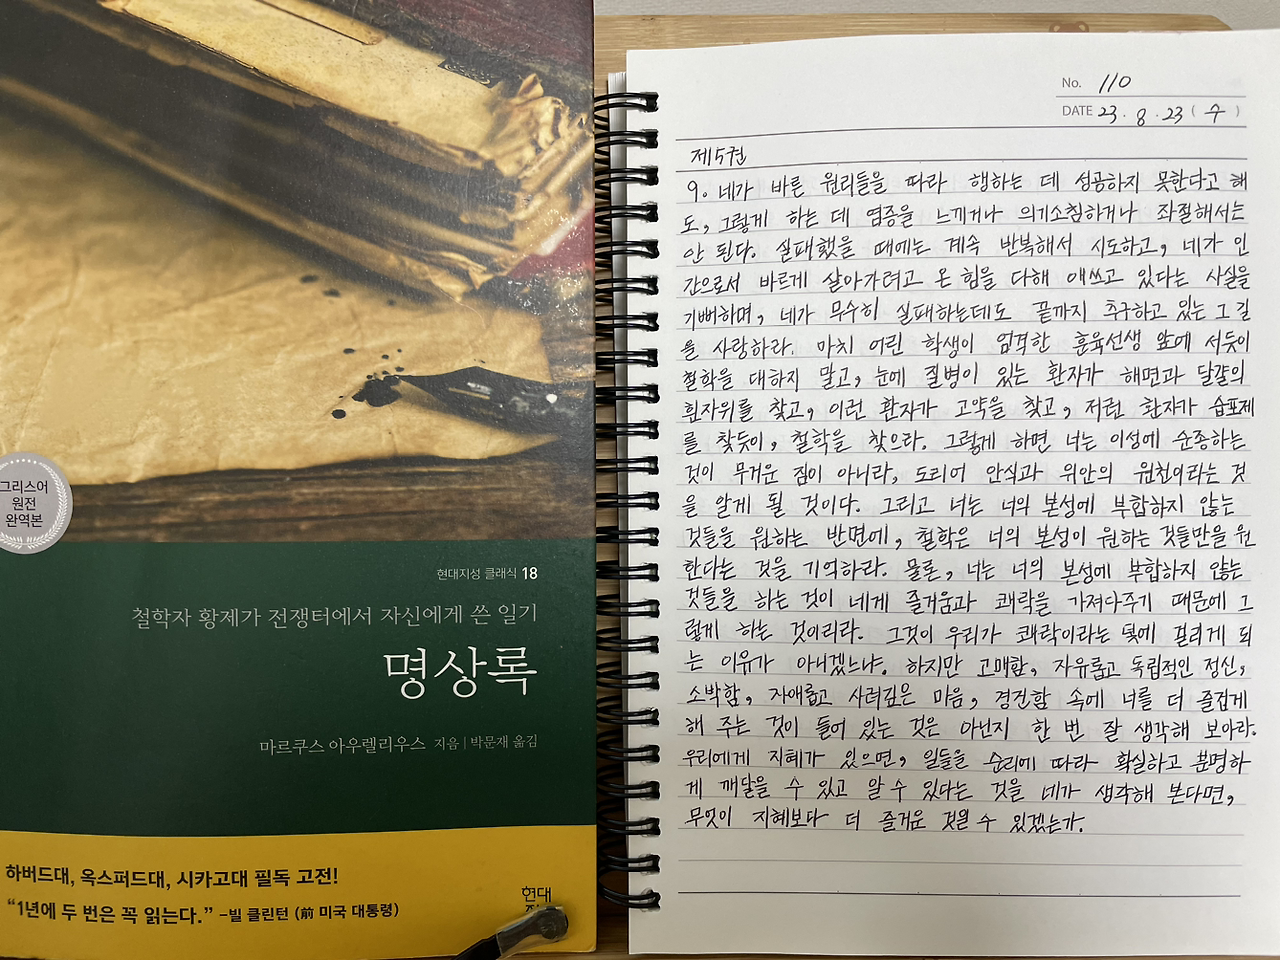 그리스어
원전
완역본
현대지성 클래식 18
철학자 황제가 전쟁터에서 자신에게 쓴 일기
명상록
마르쿠스 아우렐리우스 지음 | 박문재 옮김
하버드대, 옥스퍼드대, 시카고대 필독 고전!
“1년에 두 번은 꼭 읽는다.” –빌 클린턴 (前 미국 대통령)
현대
No. 110
DATE 23. 8. 23 (수)
제5권
9. 네가 바른 원리들을 따라 행하는 데 성공하지 못한다고 해
도, 그렇게 하는 데 염증을 느끼거나 의기소침하거나 좌절해서는
안 된다. 실패했을 때에는 계속 반복해서 시도하고, 네가 인
간으로서 바르게 살아가려고 온 힘을 다해 애쓰고 있다는 사실을
기뻐하며, 네가 무수히 실패하는데도 끝까지 추구하고 있는 그 길
을 사랑하라. 마치 어린 학생이 엄격한 훈육선생 앞에 서듯이
철학을 대하지 말고, 눈에 질병이 있는 환자가 해면과 달걀의
흰자위를 찾고, 이런 환자가 고약을 찾고, 저런 환자가 습포제
를 찾듯이, 철학을 찾으라. 그렇게 하면 너는 이성에 순종하는
것이 무거운 짐이 아니라, 도리어 안식과 위안의 원천이라는 것
을 알게 될 것이다. 그리고 너는 너의 본성에 부합하지 않는
것들을 원하는 반면에, 철학은 너의 본성이 원하는 것들만을 원
한다는 것을 기억하라. 물론, 너는 너의 본성에 부합하지 않는
것들을 하는 것이 네게 즐거움과 쾌락을 가져다주기 때문에 그
렇게 하는 것이리라. 그것이 우리가 쾌락이라는 덫에 걸리게 되
는 이유가 아니겠느냐. 하지만 고매함, 자유롭고 독립적인 정신,
소박함, 자애롭고 사려깊은 마음, 경건함 속에 너를 더 즐겁게
해 주는 것이 들어 있는 것은 아닌지 한 번 잘 생각해 보아라.
우리에게 지혜가 있으면, 일들을 순리에 따라 확실하고 분명하
게 깨달을 수 있고 알 수 있다는 것을 네가 생각해 본다면,
무엇이 지혜보다 더 즐거운 것일 수 있겠는가.